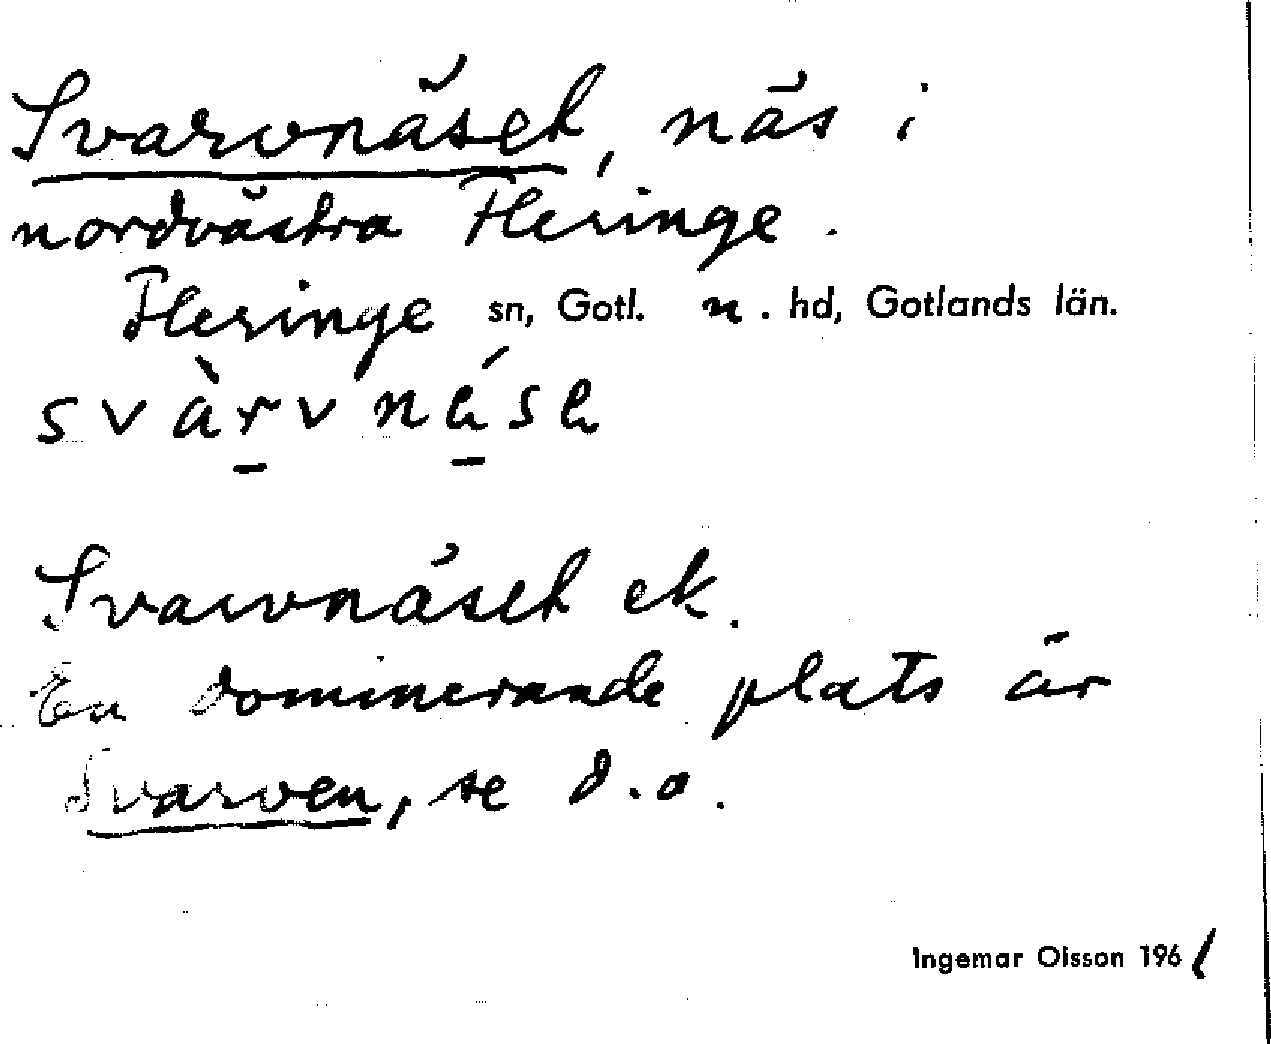 Svarvnäset, näs i
nordvästra Fleringe.
Fleringe sn, Gotl. n. hd, Gotlands län.
svàrvnésе
Svarvnäset ek.
En dominerande plats är
Svarven, se d.o.
Ingemar Olsson 1961